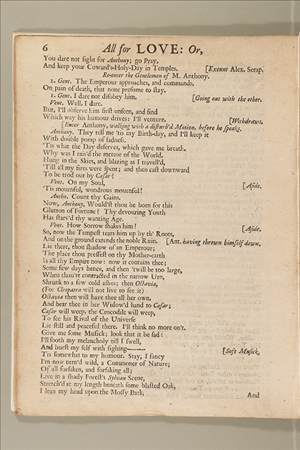 6 All for LOVE: Or,
You dare not fight for Anthony; go Pray,
And keep your Coward's-Holy-Day in Temples. [Exeunt Alex. Serap.
Re-enter the Gentlemen of M. Anthony.
2. Gent. The Emperour approaches, and commands,
On pain of death, that none presume to stay.
1. Gent. I dare not disobey him. [Going out with the other.
Vent. Well, I dare.
But, I'll observe him first unseen, and find
Which way his humour drives: I'll venture. [Withdraws.
[Enter Anthony, walking with a disturb'd Motion, before he speaks.
Anthony. They tell me 'tis my Birth-day, and I'll keep it
With double pomp of sadness.
'Tis what the Day deserves, which gave me breath.
Why was I rais'd the meteor of the World,
Hung in the Skies, and blazing as I travell'd,
'Till all my fires were spent; and then cast downward
To be trod out by Cæsar?
Vent. On my Soul,
'Tis mournful, wondrous mournful! [Aside.
Antho. Count thy Gains.
Now, Anthony, Wouldst thou be born for this
Glutton of Fortune! Thy devouring Youth
Has starv'd thy wanting Age.
Vent. How Sorrow shakes him! [Aside.
So, now the Tempest tears him up by th' Roots,
And on the ground extends the noble Ruin. [Ant. having thrown himself down.
Lie there, thou shadow of an Emperour;
The place thou pressest on thy Mother-earth
Is all thy Empire now: now it contains thee;
Some few days hence, and then 'twill be too large,
When thou'rt contracted in the narrow Urn,
Shrunk to a few cold ashes; then Octavia,
(For Cleopatra will not live to see it)
Octavia then will have thee all her own,
And bear thee in her Widow'd hand to Cæsar;
Cæsar will weep, the Crocodile will weep,
To see his Rival of the Universe
Lie still and peaceful there. I'll think no more on't.
Give me some Musick; look that it be sad:
I'll sooth my melancholy till I swell,
And burst my self with sighing—— [Soft Musick,
'Tis somewhat to my humour. Stay, I fancy
I'm now turn'd wild, a Commoner of Nature;
Of all forsaken, and forsaking all;
Live in a shady Forest's Sylvan Scene,
Stretch'd at my length beneath some blasted Oak,
I lean my head upon the Mossy Bark;
And